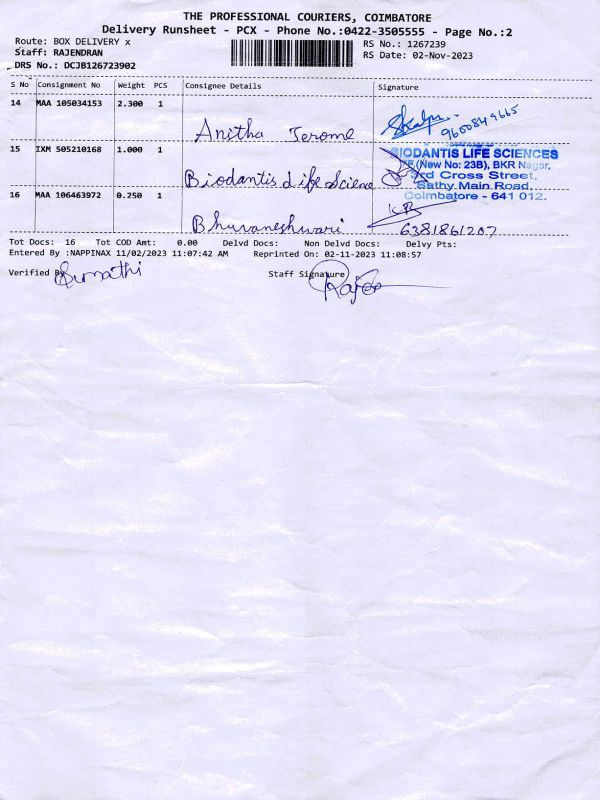 THE PROFESSIONAL COURIERS, COIMBATORE
Delivery Runsheet - PCX - Phone No.:0422-3505555 - Page No.:2
Route: BOX DELIVERY x
RS No.: 1267239
Staff: RAJENDRAN
RS Date: 02-Nov-2023
DRS No.: DCJB126723902
S No Consignment No Weight PCS Consignee Details Signature
14 MAA 105034153 2.300 1
Anitha Jerome
9600849665
15 IXM 505210168 1.000 1
Biodantis Life Science
BIODANTIS LIFE SCIENCES
(New No: 23B), BKR Nagar,
3rd Cross Street,
Sathy Main Road,
Coimbatore - 641 012.
16 MAA 106463972 0.250 1
Bhuvaneshwari
KB
6381861207
Tot Docs: 16 Tot COD Amt: 0.00 Delvd Docs: Non Delvd Docs: Delvy Pts:
Entered By :NAPPINAX 11/02/2023 11:07:42 AM Reprinted On: 02-11-2023 11:08:57
Verified By Sumathi
Staff Signature